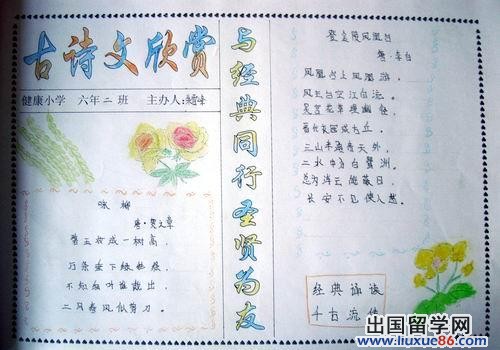 古诗文欣赏
健康小学 六年二班 主办人:
咏柳
唐·贺章
碧玉妆成一树高,
万条垂下绿丝绦。
不知细叶谁裁出,
二月春风似剪刀。
与经典同行圣贤为友
登金陵凤凰台
唐·李白
凤凰台上凤凰游,
凤去台空江自流。
吴宫花草埋幽径,
晋代衣冠成古丘。
三山半落青天外,
二水中分白鹭洲。
总为浮云能蔽日,
长安不见使人愁。
经典诵读
千古流传
出国留学网
www.liuxue86.com